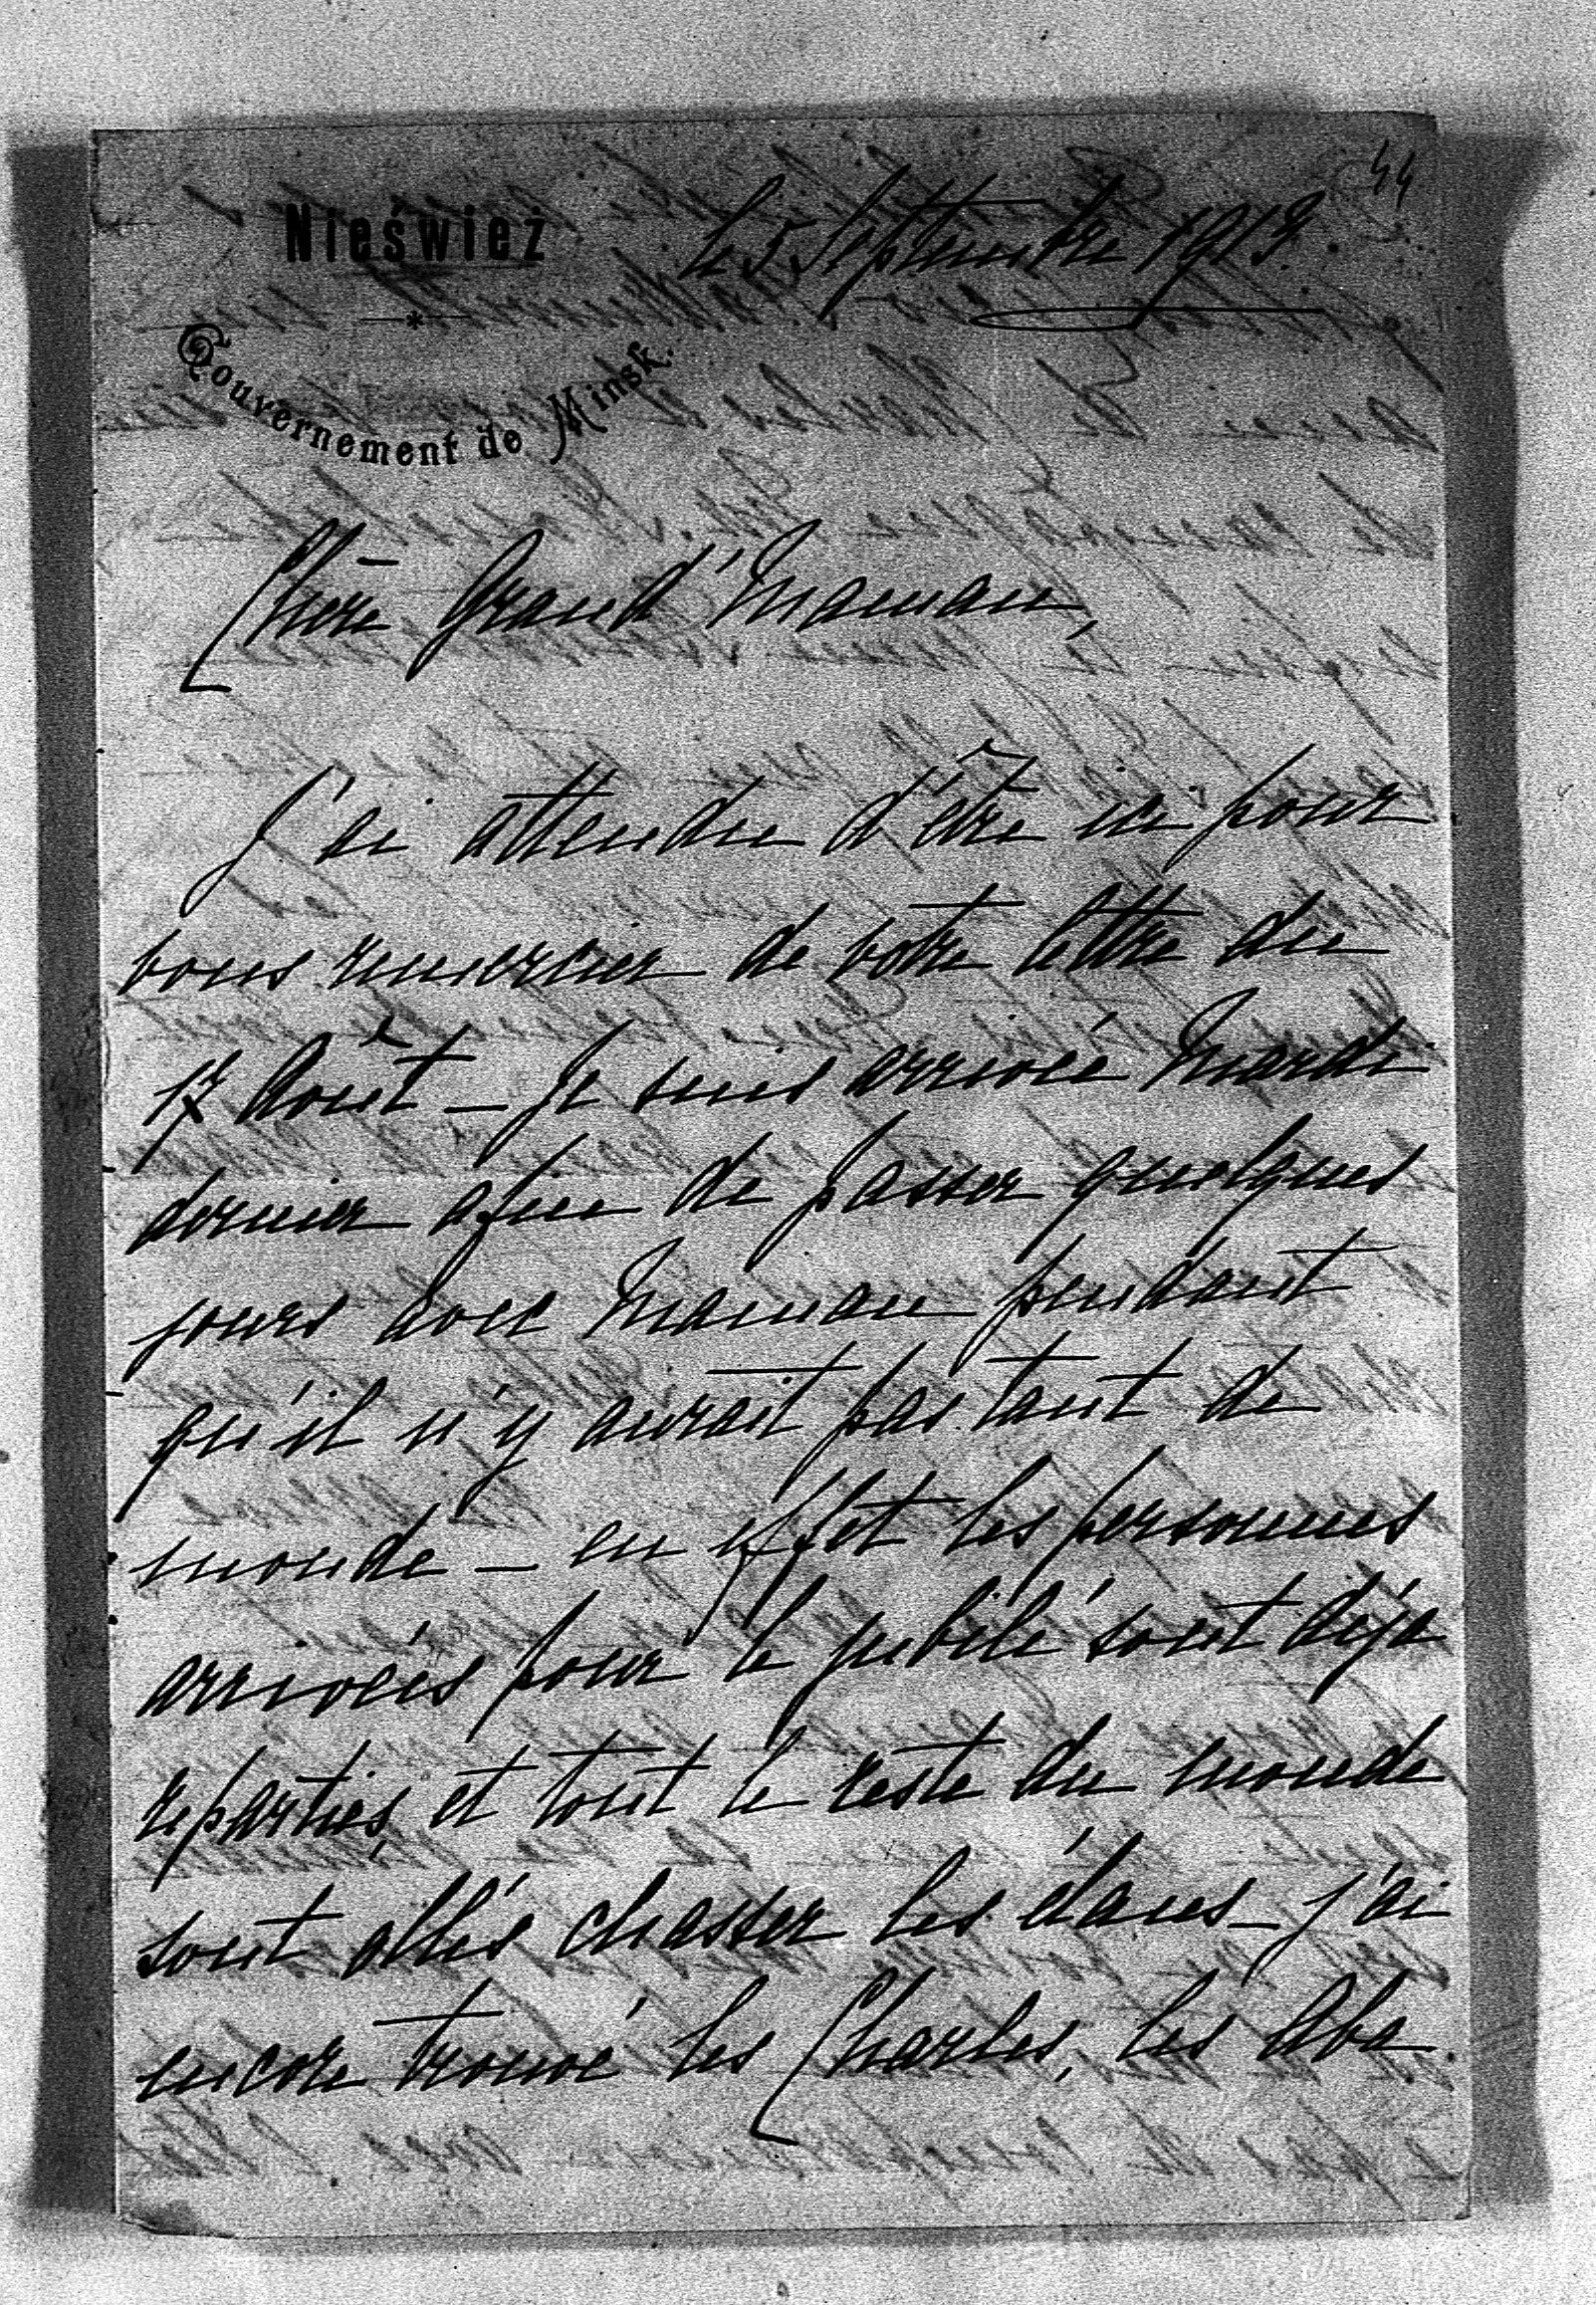 44
Nieśwież
le 5 Septembre 1912.
Gouvernement de Minsk.
Chère Grand' Maman,
J'ai attendu d'être ici pour
vous remercier de votre lettre du
17 Août – Je suis arrivé Mardi
dernier afin de passer quelques
jours avec Maman pendant
qu'il n'y aurait pas tant de
monde – en effet les personnes
arrivées pour le jubilé sont déjà
reparties, et tout le reste du monde
sont allés chasser les élans – j'ai
encore trouvé les Charles, les Aba